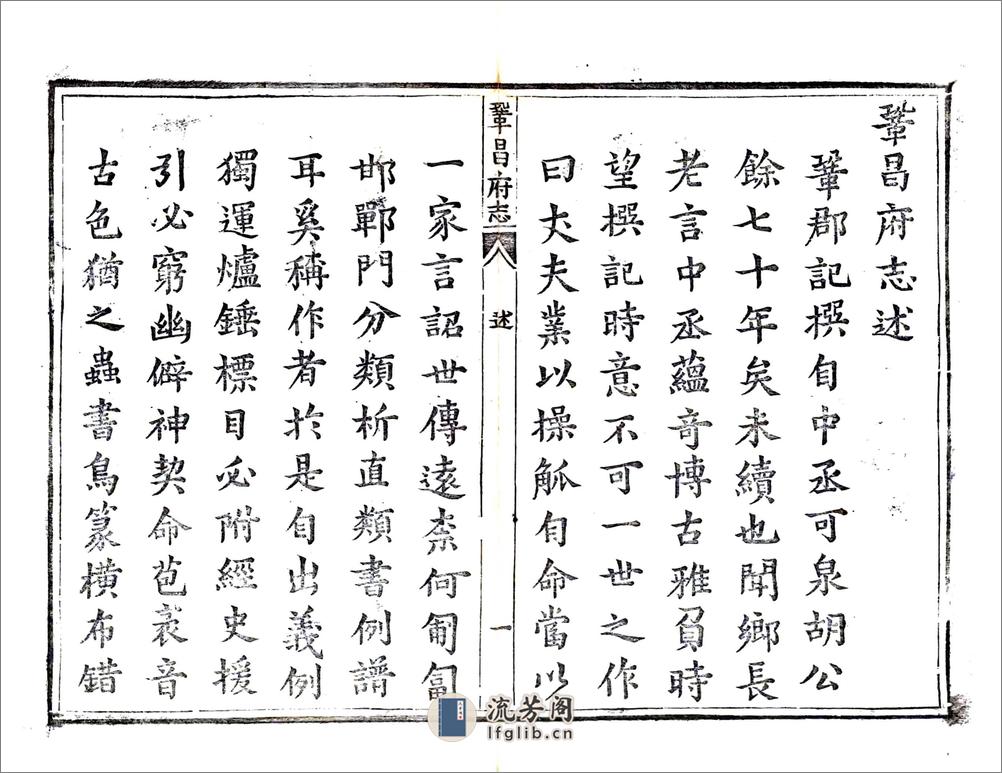 鞏昌府志述
鞏郡記撰自中丞可泉胡公
餘七十年矣未續也聞鄉長
老言中丞蘊竒博古雅負時
望撰記時意不可一世之作
曰大夫業以操觚自命當以
鞏昌府志
述
一
一家言詔世傳遠柰何匍匐
邯鄲門分類析直類書例譜
耳奚稱作者於是自出義例
獨運爐錘標目必附經史援
引必窮幽僻神契命苞袤音
古色猶之蟲書鳥篆橫布錯
流芳阁
lfglib.cn